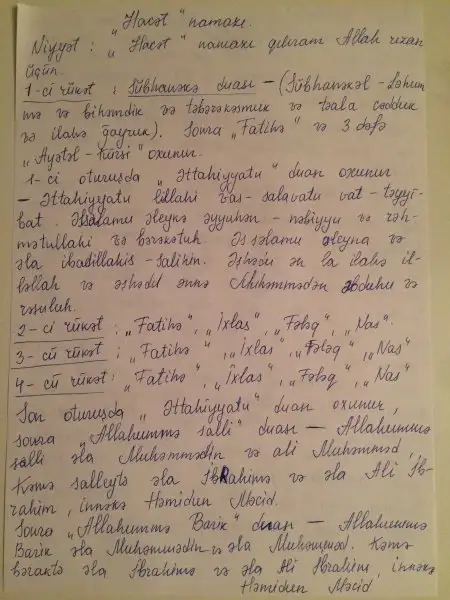 "Hacət" namazı.
Niyyət: "Hacət" namazı qılıram Allah rızası
üçün.
1-ci rükət: Sübhanəkə duası - (Sübhanəkəl-ləhum
mə və bihəmdik və təbərəkəsmuk və təala cədduk
və ilahə ğayruk). Sonra "Fatihə" və 3 dəfə
"Ayətəl-kürsi" oxunur.
1-ci oturuşda "Əttahiyyatu" duası oxunur
- Əttahiyyatu lillahi vas-salavatu vat-tayyi-
bat. Əssəlamu əleykə əyyuhən-nəbiyyu və rəh-
mətullahi və bərəkətuh. Əs səlamu əleyna və
əla ibadillahis-salihin. Əşhədu ən lə ilahə il-
ləllah və əşhədu ənnə Muhəmmədən abduhu və
rəsuluh.
2-ci rükət: "Fatihə", "İxlas", "Fələq", "Nas".
3-cü rükət: "Fatihə", "İxlas", "Fələq", "Nas"
4-cü rükət: "Fatihə", "İxlas", "Fələq", "Nas"
Son oturuşda "Əttahiyyatu" duası oxunur,
sonra "Allahummə salli" duası - Allahummə
salli əla Muhəmmədin və ali Muhəmməd,
Kəmə salleytə əla İbRahimə və əla Ali İb-
rahim, innəkə Həmidun Məcid.
Sonra "Allahummə Barik" duası - Allahummə
Barik əla Muhəmmədin və əla Muhəmməd. Kəmə
bəraktə əla İbrahimə və əla Ali İbrahim, innəkə
Həmidun Məcid